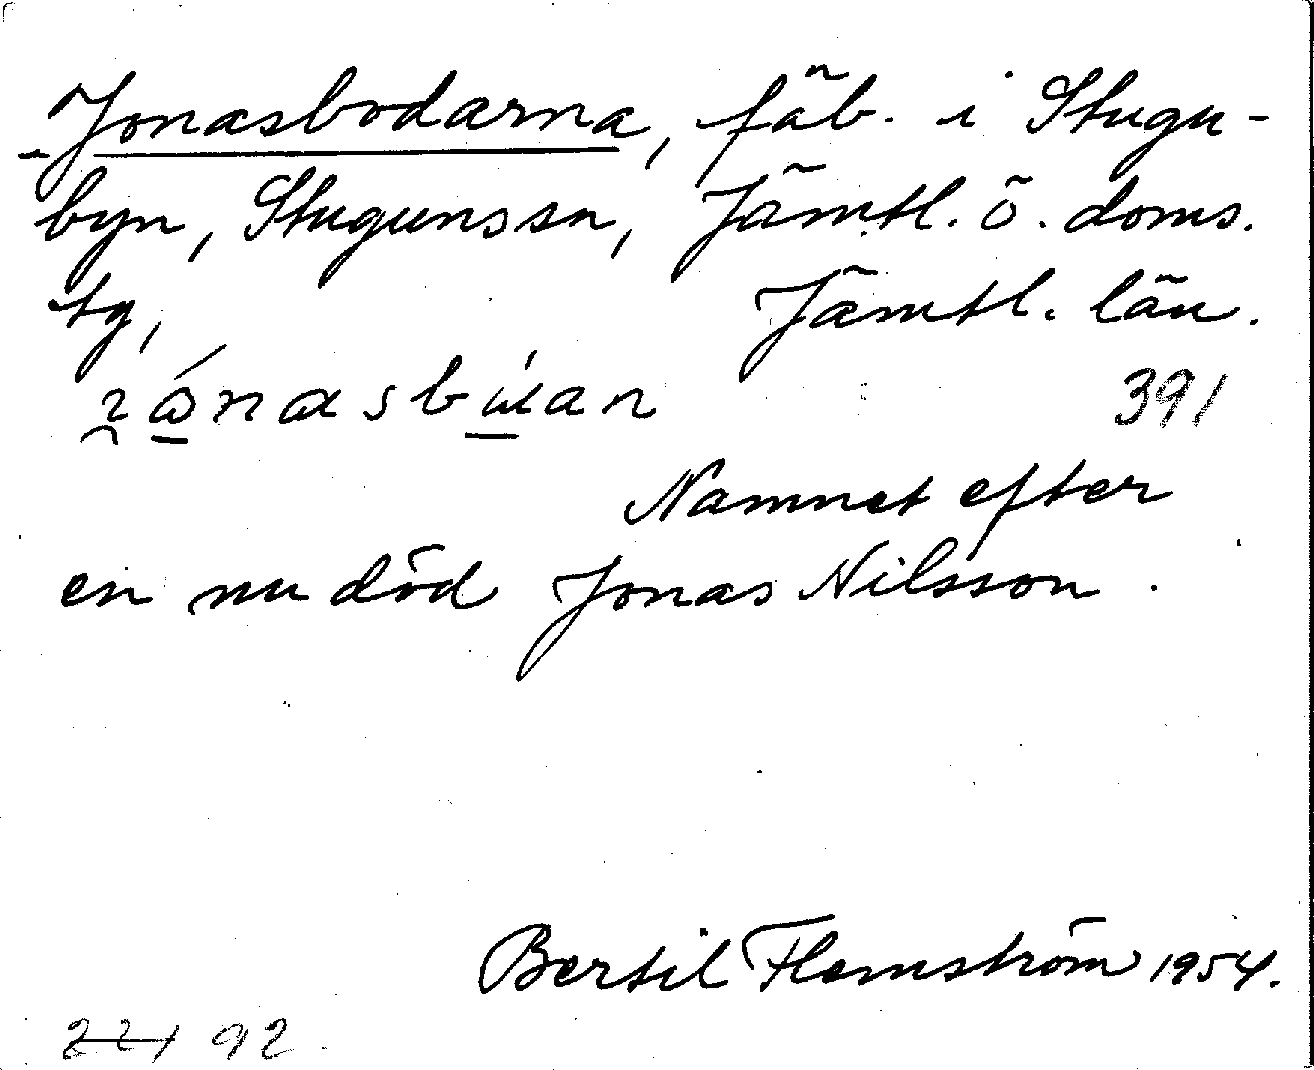 Jonasbodarna, fäb. i Stugu-
byn, Stugunssn, Jämtl. ö. doms.
tg, Jämtl. län.
391
Namnet efter
en nu död Jonas Nilsson.
Bertil Flemström 1954.
221 92